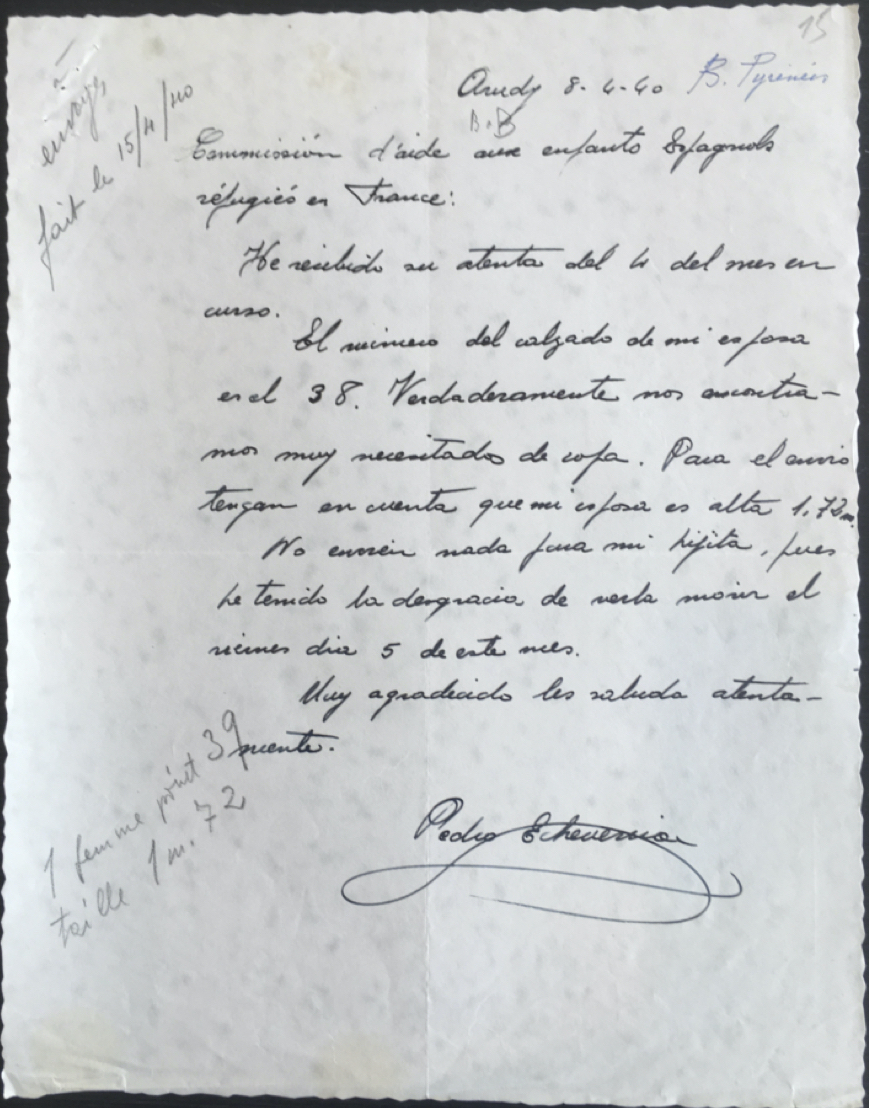 15
Arudy 8-4-40 B. Pyrénées
B.B
envoyé
fait le 15/4/40
Commissión d'aide aux enfants Espagnols
réfugiés en France:
He recibido su atenta del 4 del mes en
curso.
El número del calzado de mi esposa
es el 38. Verdaderamente nos encontra-
mos muy necesitados de ropa. Para el envio
tengan en cuenta que mi esposa es alta 1,72m.
No envien nada para mi hijita, pues
he tenido la desgracia de verla morir el
viernes dia 5 de este mes.
Muy agradecido les saluda atenta-
mente.
Pedro Echeverria
1 femme point 39
taille 1 m. 72